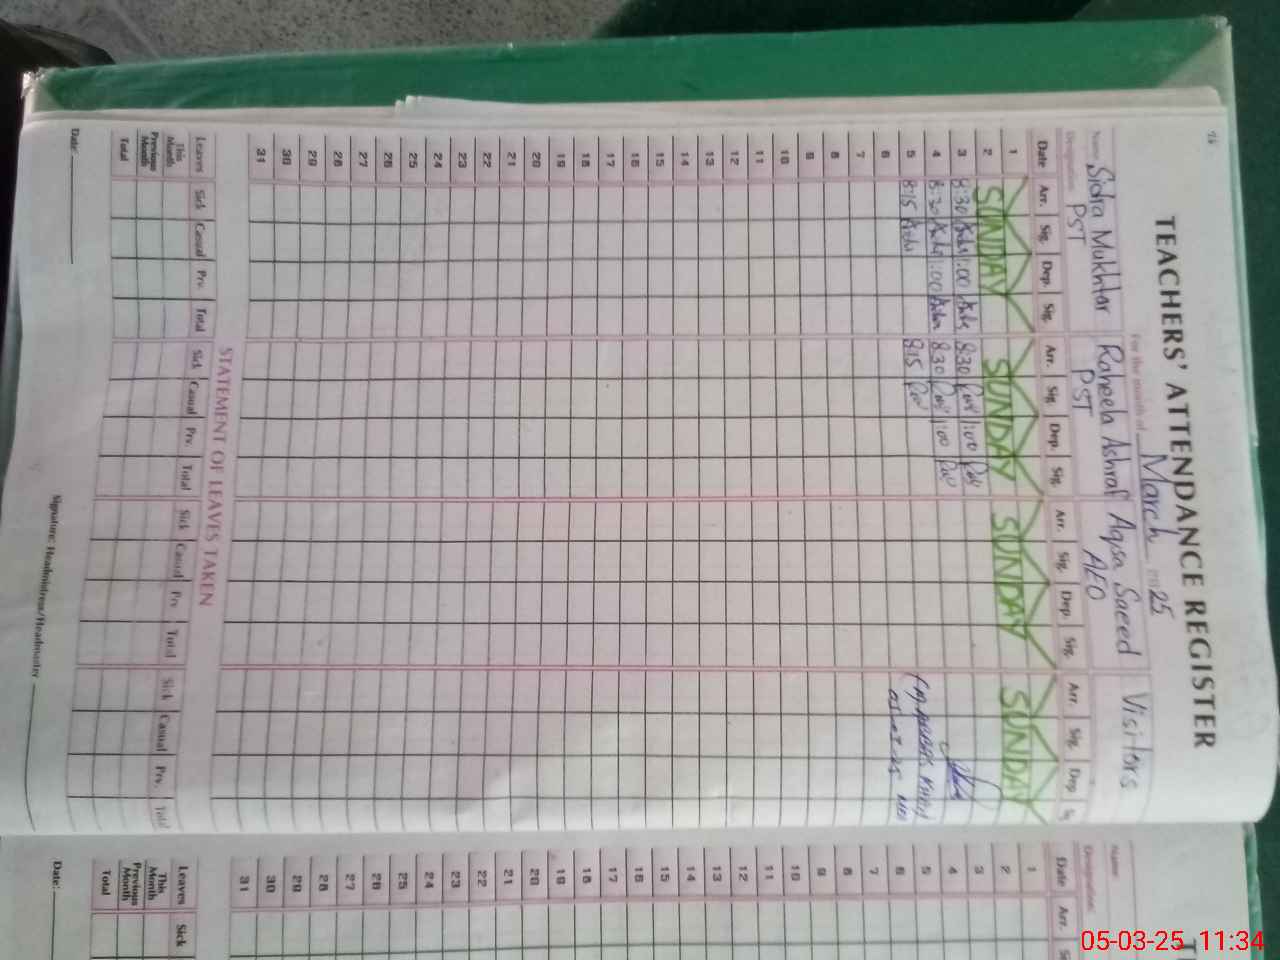 TEACHERS' ATTENDANCE REGISTER
For the month of March 2025
Name Sidra Mukhtar Raheela Ashraf Aqsa Saeed Visitors
Designation PST PST AEO
Date Arr. Sig. Dep. Sig. Arr. Sig. Dep. Sig. Arr. Sig. Dep. Sig. Arr. Sig. Dep Sig
1
2 SUNDAY SUNDAY SUNDAY SUNDAY
3 8:30 1:00 8:30 1:00
4 8:30 1:00 8:30 1:00
5 8:15 8:15
6
7
8
9
10
11
12
13
14
15
16
17
18
19
20
21
22
23
24
25
26
27
28
29
30
31
STATEMENT OF LEAVES TAKEN
Leaves Sick Casual Prv. Total Sick Casual Prv. Total Sick Casual Prv Total Sick Casual Prv. Total
This Month
Previous Month
Total
Date: Signature: Headmistress/Headmaster
Name
Designation:
Date Arr.
1
2
3
4
5
6
7
8
9
10
11
12
13
14
15
16
17
18
19
20
21
22
23
24
25
26
27
28
29
30
31
Leaves Sick
This Month
Previous Month
Total
Date:
05-03-25 11:34